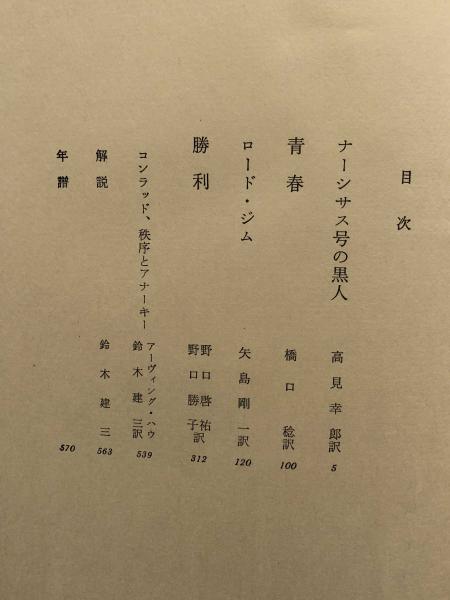 目次
ナーシサス号の黒人 高見幸郎訳 5
青春 橋口稔訳 100
ロード・ジム 矢島剛一訳 120
勝利 野口啓祐 野口勝子訳 312
コンラッド、秩序とアナーキー アーヴィング・ハウ 鈴木建三訳 539
解説 鈴木建三 563
年譜 570